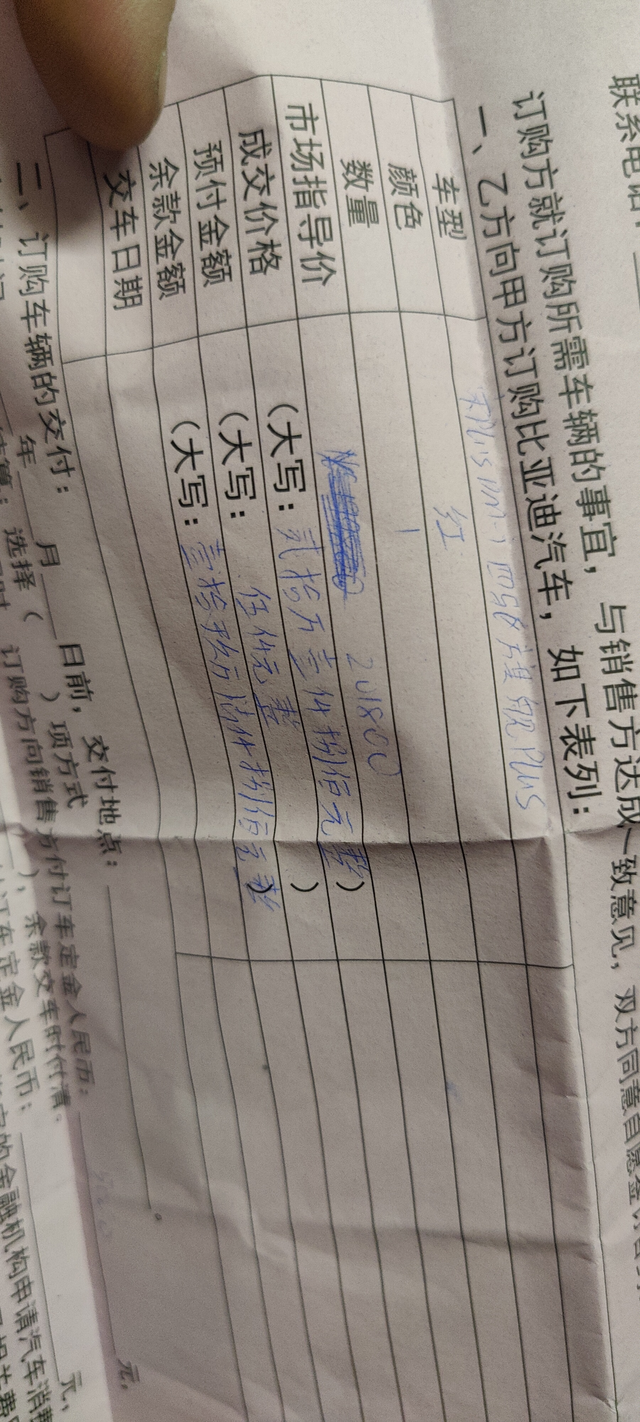 联系电话:
订购方就订购所需车辆的事宜，与销售方达成一致意见，双方同意自愿
一、乙方向甲方订购比亚迪汽车，如下表列：
车型 宋Plus DM-i 四驱旗舰PLUS
颜色 红
数量 1
市场指导价 201800
成交价格 （大写：贰拾万壹仟捌佰元整）
预付金额 （大写： 伍仟元整 ）
余款金额 （大写：壹拾玖万陆仟捌佰元整
交车日期
二、订购车辆的交付：
年 月 日前，交付地点：
选择（ ）项方式
订购方向销售方付订车定金人民币： 元，
），余款交车时付清。
订车定金人民币： 元，
的金融机构申请汽车消费